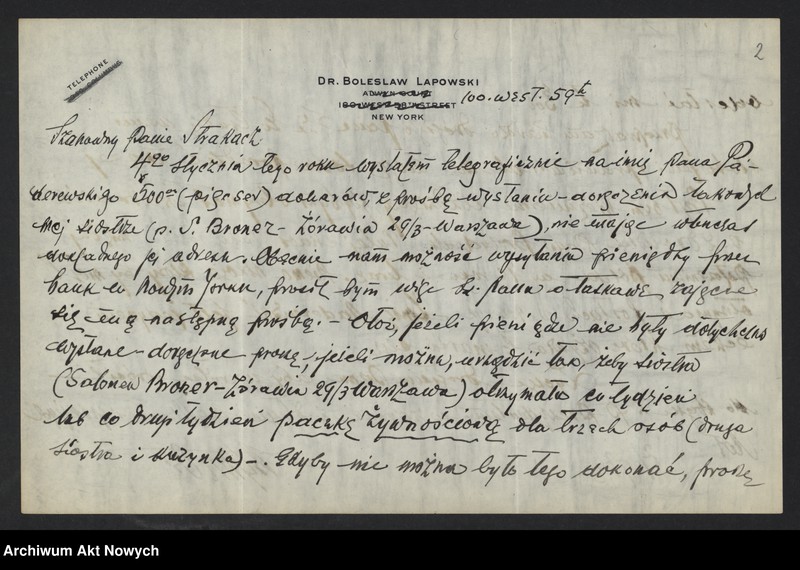 2
TELEPHONE
DR. BOLESLAW LAPOWSKI
100. WEST. 59th
NEW YORK
Szanowny Panie Strakacz
4go Stycznia tego roku wysłałem telegraficznie na imię Pana Pa-
derewskiego $500 (pięćset) dolarów, z prośbą wysłania - doręczenia takowych
mej siostrze (p. S. Broner - Żórawia 29/3 - Warszawa), nie mając wówczas
dokładnego jej adresu. Obecnie mam możność wysyłania pieniędzy przez
bank w Nowym Yorku, prosił bym więc Sz. Pana o łaskawe zajęcie
się tą następną prośbą. - Otóż, jeżeli pieniądze nie były dotychczas
wysłane - doręczone proszę, jeżeli można, urządzić tak, żeby siostra
(Salomea Broner - Żórawia 29/3 Warszawa) otrzymała co tydzień
lub co drugi tydzień paczkę żywnościową dla trzech osób (druga
siostra i kuzynka) -. Gdyby nie można było tego dokonać, proszę
Archiwum Akt Nowych